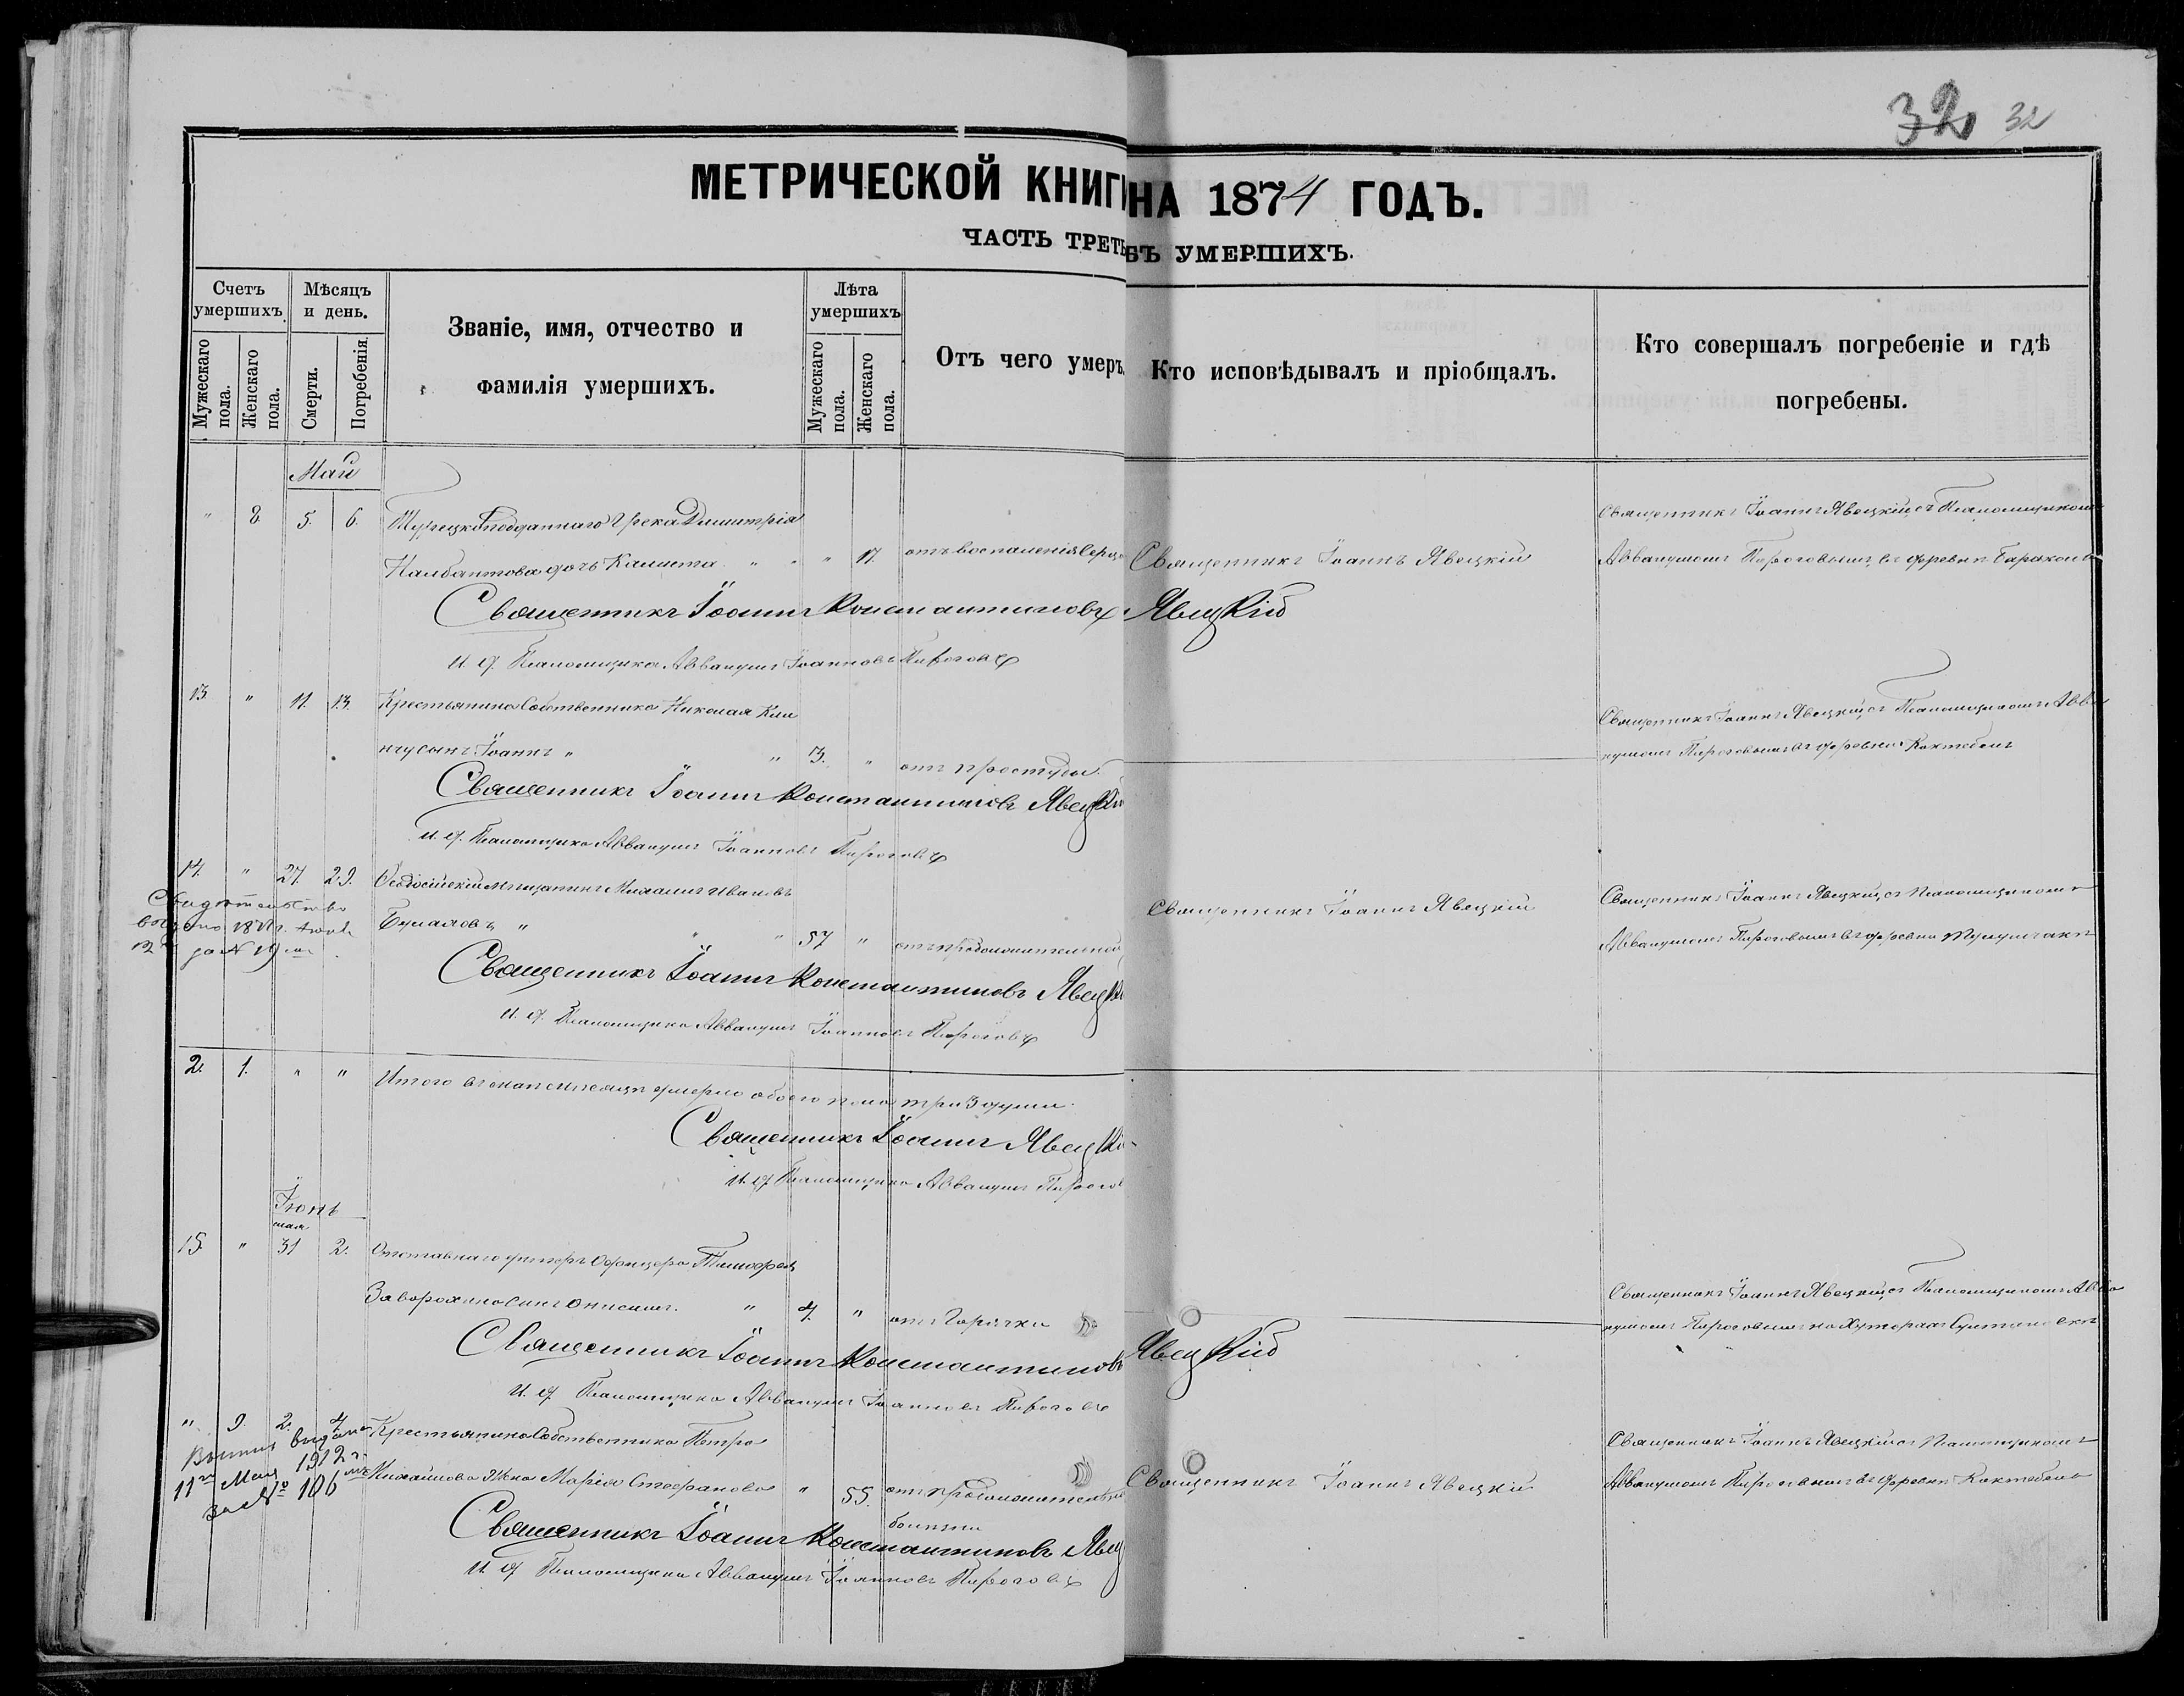 32 32
МЕТРИЧЕСКОЙ КНИГИ НА 1874 ГОДЪ.
ЧАСТЬ ТРЕТЬ БЪ УМЕРШИХЪ.
Счетъ умершихъ.
Мужескаго пола.
Женскаго пола.
Мѣсяцъ и день.
Смерти.
Погребенія.
Званіе, имя, отчество и
фамилія умершихъ.
Лѣта умершихъ
Мужескаго пола.
Женскаго пола.
Отъ чего умеръ.
Кто исповѣдывалъ и пріобщалъ.
Кто совершалъ погребеніе и гдѣ
погребены.
Май
" 8. 5. 6. Турецкоподданнаго Грека Димитрія
Священникъ Іоаннъ Явецкій съ Псаломщикомъ
Налбантова дочь " " " 17. отъ воспаленія Священникъ Іоаннъ Явецкій
Аввакумомъ Пироговымъ въ деревнѣ
Священникъ Іоаннъ Константиновъ Явецкій
И. д. Псаломщика Аввакумъ Іоанновъ Пироговъ
13. " 11. 13. Крестьянина Собственника Николая
Священникъ Іоаннъ Явецкій съ Псаломщикомъ Авва
сынъ Іоаннъ " " 3. " отъ простуды.
кумомъ Пироговымъ въ деревнѣ Коктебелѣ
Священникъ Іоаннъ Константиновъ Явецкій
И. д. Псаломщика Аввакумъ Іоанновъ Пироговъ
14. " 27. 29. Ѳеодосійскій мѣщанинъ Михаилъ Ивановъ
Священникъ Іоаннъ Явецкій съ Псаломщикомъ
Свидѣтельство
выдано
за № 19
" " 57 " отъ продолжительной
Священникъ Іоаннъ Явецкій
Аввакумомъ Пироговымъ въ деревнѣ
Священникъ Іоаннъ Константиновъ Явецкій
И. д. Псаломщика Аввакумъ Іоанновъ Пироговъ
2. 1. " " Итого въ маѣ мѣсяцѣ умерло обоего пола три 3 души.
Священникъ Іоаннъ Явецкій
И. д. Псаломщика Аввакумъ Пирогов
Іюнь
мая
15. " 31 2. Отставнаго унтеръ Офицера Тимофея
Священникъ Іоаннъ Явецкій съ Псаломщикомъ Авва
сынъ Онисимъ. " 7. " отъ Горячки
кумомъ Пироговымъ на Хуторахъ
Священникъ Іоаннъ Константиновъ Явецкій
И. д. Псаломщика Аввакумъ Іоанновъ Пироговъ
" 9. 2. 4. Крестьянина Собственника Петра
Священникъ Іоаннъ Явецкій съ Псаломщикомъ
Выпись выдана
11го Мая 1912 г.
за № 106
Михайлова жена Марія Стефанова " 55. отъ продолжительной
болѣзни
Священникъ Іоаннъ Явецкій
Аввакумомъ Пироговымъ въ деревнѣ Коктебелѣ
Священникъ Іоаннъ Константиновъ Явец
И. д. Псаломщика Аввакумъ Іоанновъ Пироговъ